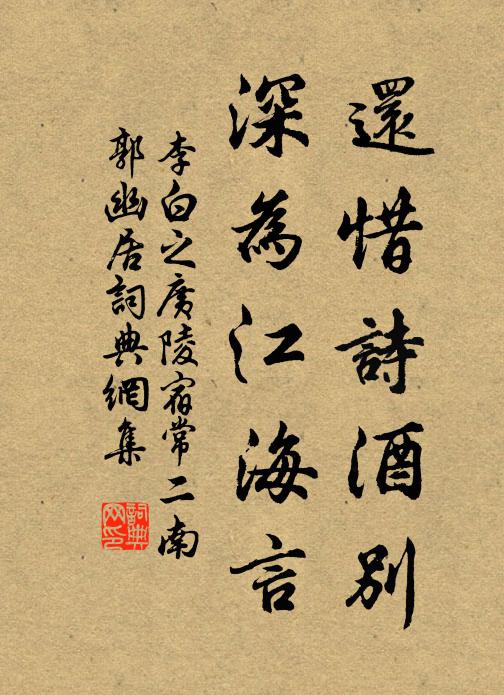 還惜詩酒別
深為江海言
李白之廣陵宿常二南
郭幽居詞典網集
詞典
网印